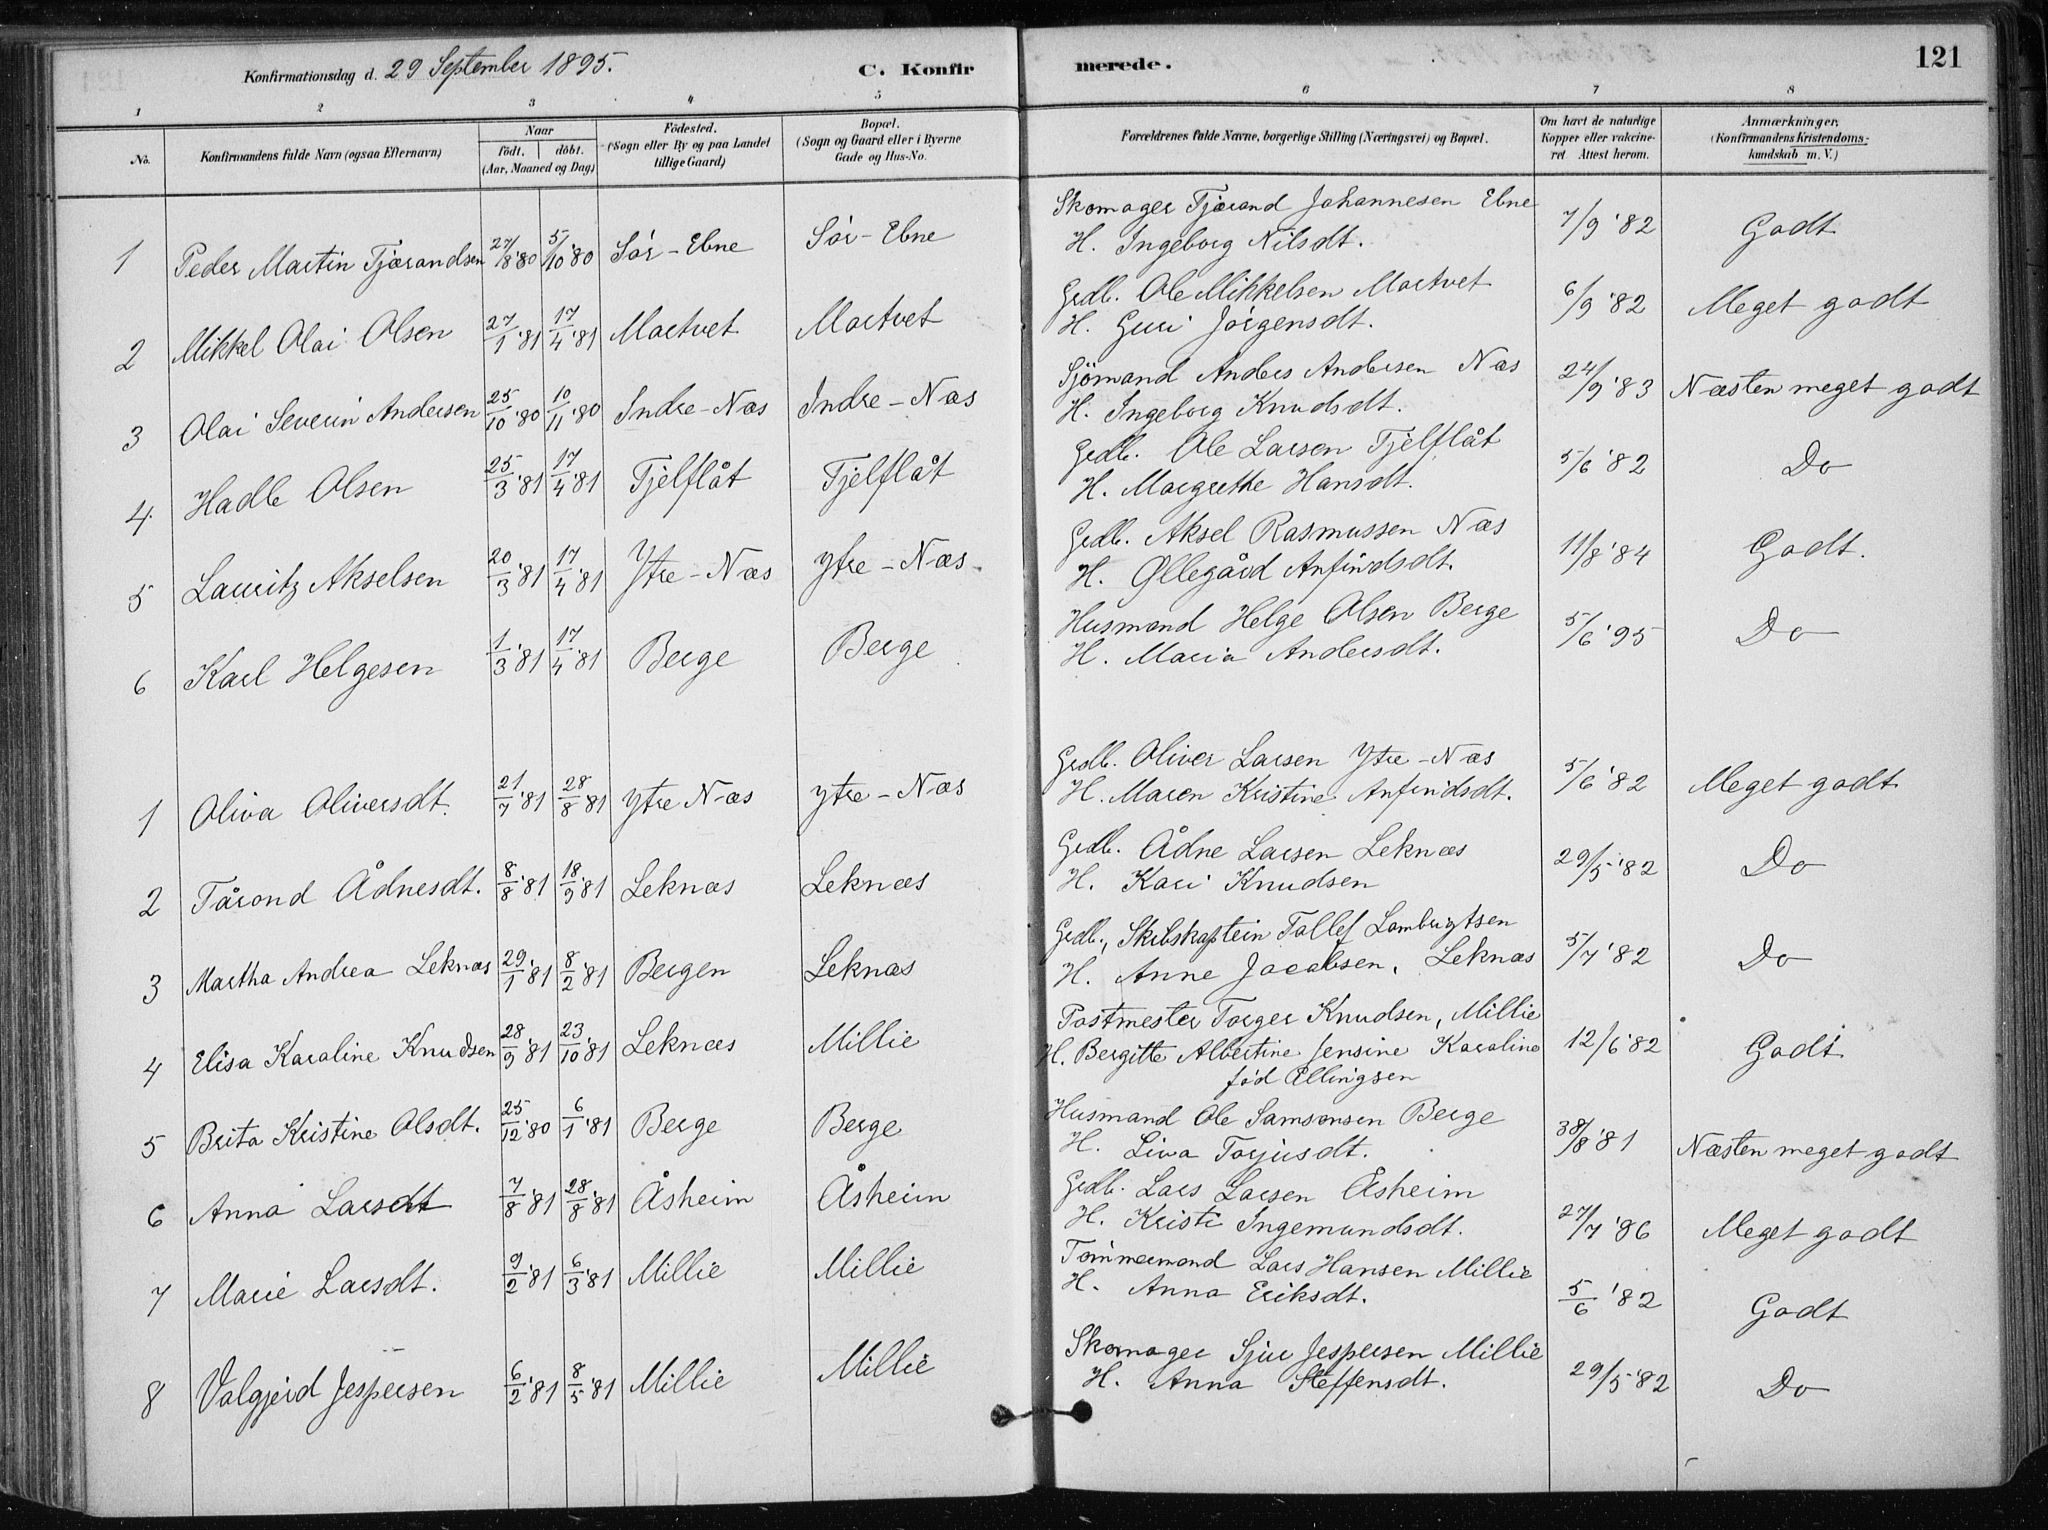 Konfirmationsdag d. 29 September 1895. C. Konfirmerede. 121
1 2 3 4 5 6 7 8
No. Konfirmandens fulde Navn (ogsaa Efternavn) Naar födt. döbt. (Aar, Maaned og Dag) Födested. (Sogn eller By og paa Landet tillige Gaard) Bopæl. (Sogn og Gaard eller i Byerne Gade og Hus-No. Forældrenes fulde Navne, borgerlige Stilling (Næringsvei) og Bopæl. Om havt de naturlige Kopper eller vakcineret Attest herom. Anmærkninger, (Konfirmandens Kristendomskundskab m. V.)
1 Peder Martin Tjærandsen 27/8 '80 5/10 '80 Sör-Ebne Sör-Ebne Skomager Tjærand Johannesen Ebne 7/9 '82 Godt
H. Ingeborg Nilsdt.
2 Mikkel Olai Olsen 27/1 '81 17/4 '81 Martvet Martvet Grdb. Ole Mikkelsen Martvet 6/9 '82 Meget godt
H. Guri Jörgensdt.
3 Olai Severin Andersen 25/10 '80 10/11 '80 Indre-Næs Indre-Næs Sjömand Anders Andersen Næs 24/9 '83 Næsten meget godt
H. Ingeborg Knudsdt.
4. Hadle Olsen 25/3 '81 17/4 '81 Tjelflåt Tjelflåt Grdb. Ole Larsen Tjelflåt 5/6 '82 Do
H. Margrethe Hansdt.
5 Lauritz Akselsen 20/3 '81 17/4 '81 Ytre-Næs Ytre-Næs Grdb. Aksel Rasmussen Næs 11/8 '84 Godt.
H. Øllegård Anfindsdt.
6 Karl Helgesen 1/3 '81 17/4 '81 Berge Berge Husmand Helge Olsen Berge 5/6 '95 Do
H. Maria Andersdt.
1 Oliva Oliversdt. 21/7 '81 28/8 '81 Ytre Næs Ytre-Næs Grdb. Oliver Larsen Ytre-Næs 5/6 '82 Meget godt
H. Maren Kristine Anfindsdt.
2 Tårond Ådnesdt. 8/8 '81 18/9 '81 Leknæs Leknæs Grdb. Ådne Larsen Leknæs 29/5 '82 Do
H. Kari Knudsen
3 Martha Andrea Leknæs 29/1 '81 8/2 '81 Bergen Leknæs Grdb., Skibskaptein Tollef Lambrigtsen 5/7 '82 Do
H. Anne Jacobsen, Leknæs
4 Elisa Karoline Knudsen 28/9 '81 23/10 '81 Leknæs Millie Postmester Torger Knudsen, Millie 12/6 '82 Godt
H. Bergitte Albertine Jensine Karoline
föd Ellingsen
5 Brita Kristine Olsdt. 25/12 '80 6/1 '81 Berge Berge Husmand Ole Samsonsen Berge /8 '81 Næsten meget godt
H. Liva Torjusdt.
6 Anna Larsdt 7/8 '81 28/8 '81 Åsheim Åsheim Grdb. Lars Larsen Åsheim 27/7 '86 Meget godt
H. Kristi Ingemundsdt.
7 Marie Larsdt. 9/2 '81 6/3 '81 Millie Millie Tömmermand Lars Hansen Millie 5/6 '82 Godt
H. Anna Eriksdt.
8 Valgjerd Jespersen 6/2 '81 8/5 '81 Millie Millie Skomager Sjur Jespersen Millie 29/5 '82 Do
H. Anna Steffensdt.